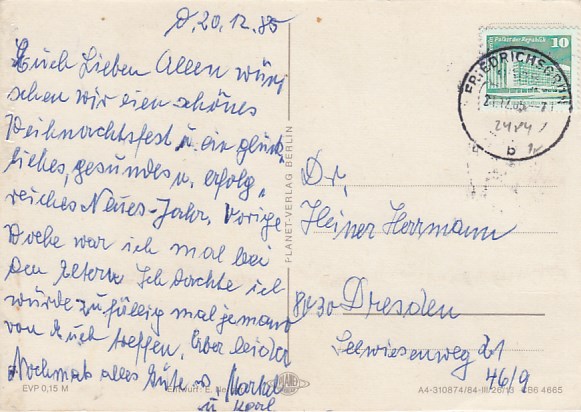 D, 20.12.85
Euch Lieben Allen wün
schen wir ein schönes
Weihnachtsfest u. ein glück
liches, gesundes u. erfolg,
reiches Neues-Jahr. Vorige
Woche war ich mal bei
den Eltern. Ich dachte ich
würde zufällig mal jemand
von Euch treffen. Aber leider
Nochmals alles Gute
u
EVP 0,15 M
Entwurf: E.
PLANET-VERLAG BERLIN
PLANET
Palast der Republik
10
FRIEDRICHSGRÜN
21.12.85
b
Dr,
Heiner Herrmann
8030 Dresden
Leewiesenweg 21
46/9
A4-310874/84-III/26/13
4665